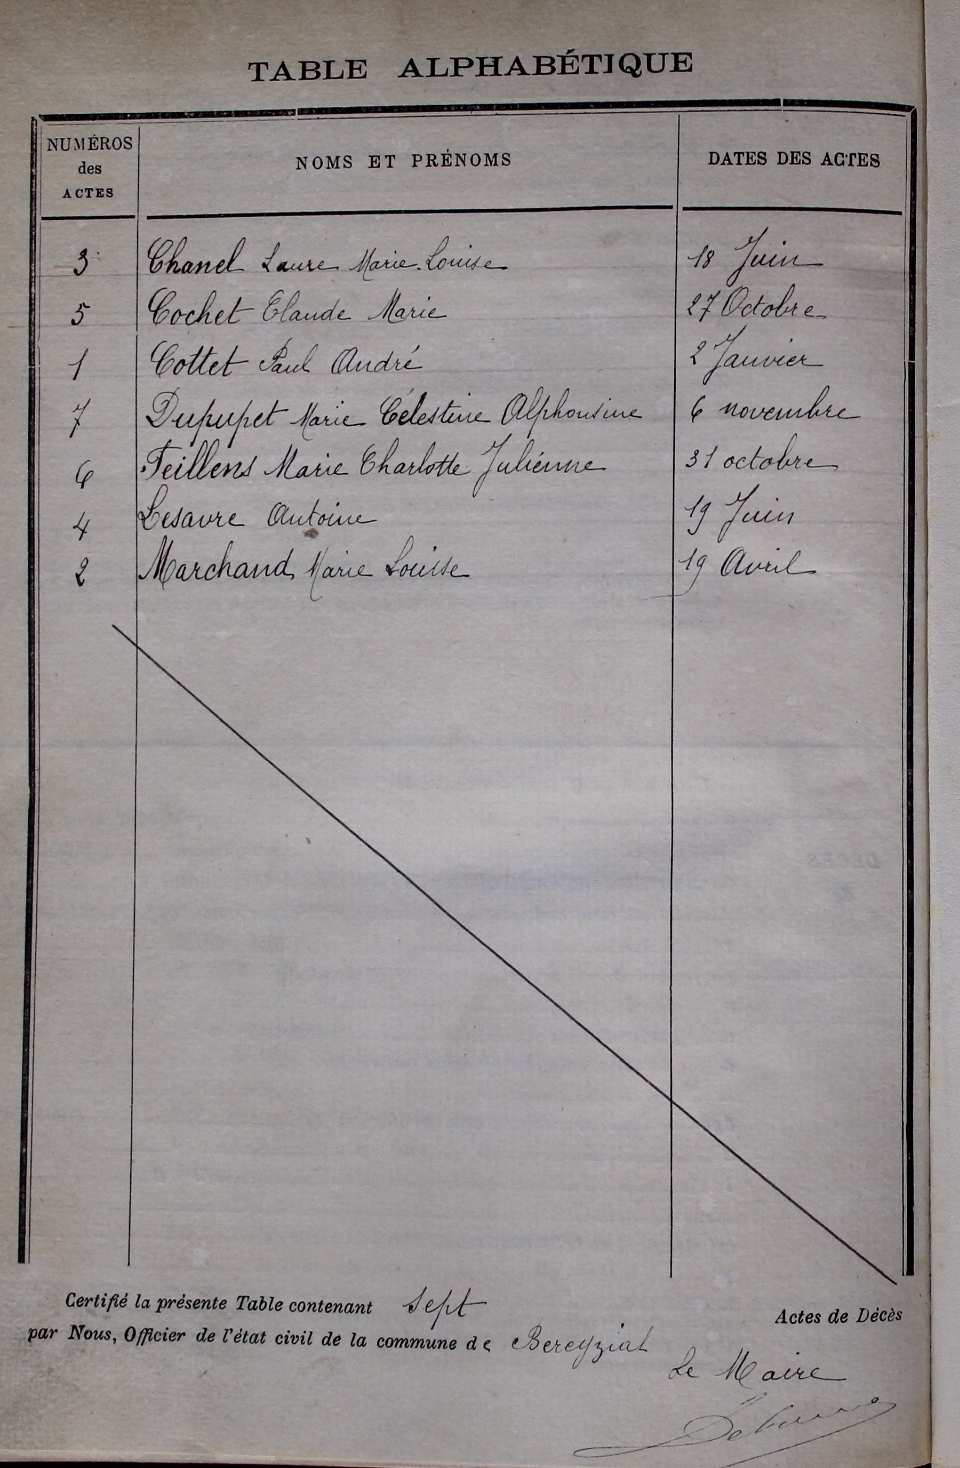 TABLE ALPHABÉTIQUE
NUMÉROS des ACTES NOMS ET PRÉNOMS DATES DES ACTES
3 Chanel Laure Marie-Louise 18 Juin
5 Cochet Claude Marie 27 Octobre
1 Cottet Paul André 2 Janvier
7 Dupupet Marie Célestine Alphonsine 6 novembre
6 Feillens Marie Charlotte Julienne 31 octobre
4 Lesavre Antoine 19 Juin
2 Marchand Marie Louise 19 Avril
Certifié la présente Table contenant sept Actes de Décès
par Nous, Officier de l'état civil de la commune de Bereyziat
Le Maire